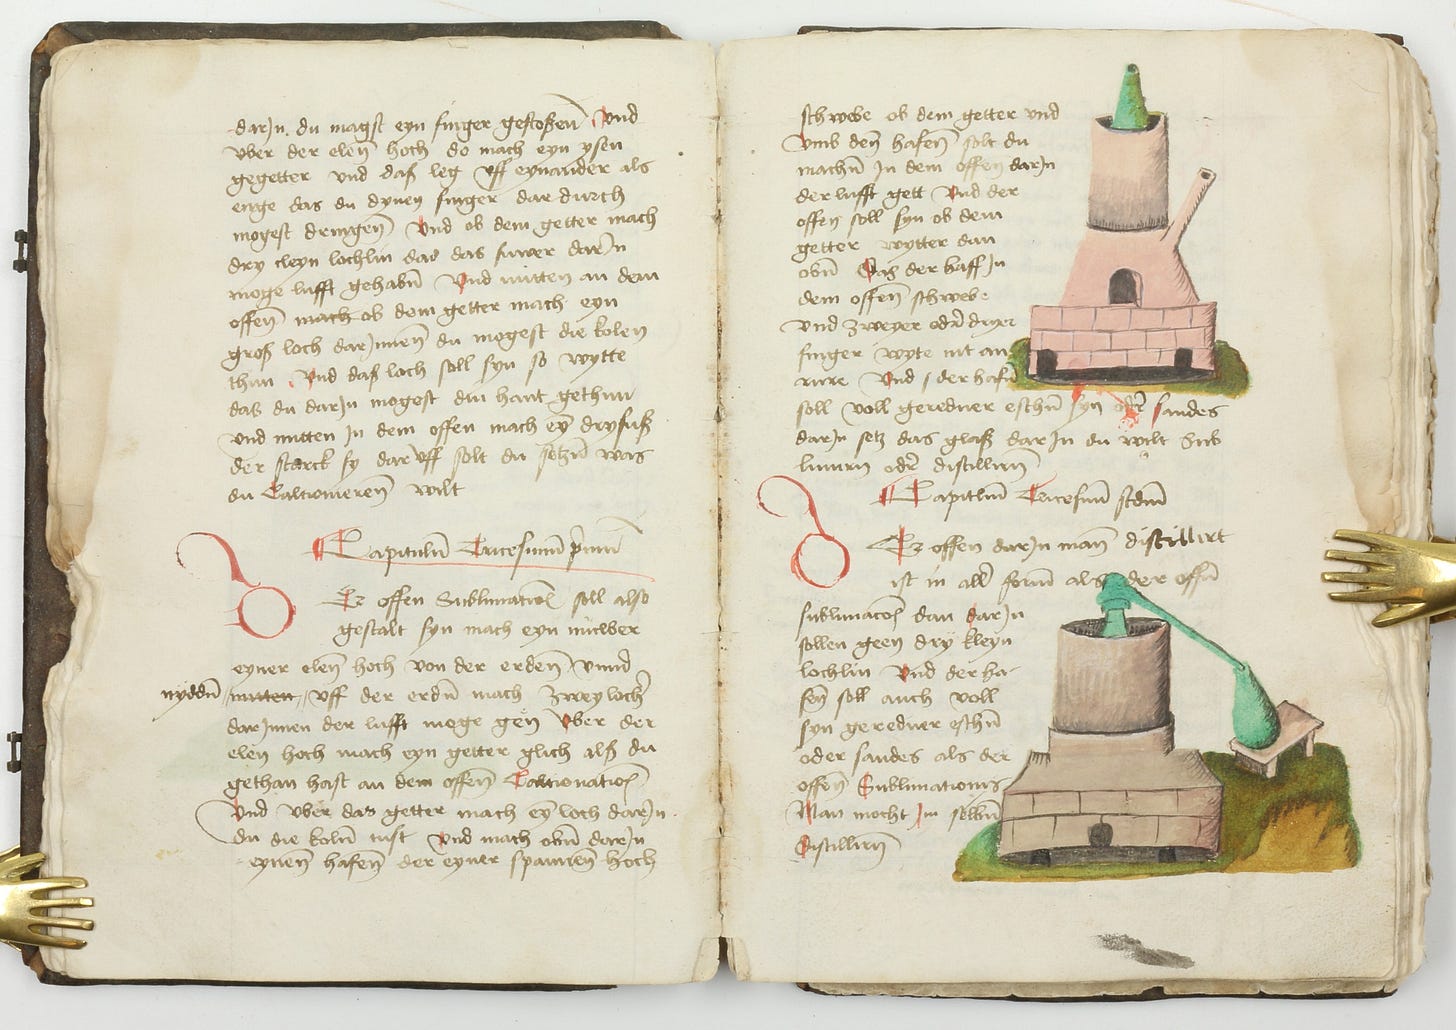 darJn. du magst eyn finger gestoßen Vnd
vber der elen hoch do mach eyn ysen
gegetter vnd daß leg vff eynander als
enge das du dynen finger dar durch
mogest dringen Vnd ob dem getter mach
dry cleyn lochlin das das fuwer darJn
moge lufft gehabn Vnd mitten an dem
offen mach ob dem getter mach eyn
groß loch darJnnen du mogest die kolen
thun Vnd daß loch soll syn so wytte
das du darJn mogest din hant gethun
vnd mitten Jn dem offen mach ey dryfuß
der starck sy dar vff solt du setzn was
du Calcionieren wilt
Capitlm Tricesimm primm
D Er offen Sublimationis soll also
gestalt syn mach eyn mwlber
eyner elen hoch von der erden vnnd
nyddn mitten vff der erdn mach zwey locher
darJnnen der lufft moge gen Vber der
elen hoch mach eyn getter glich alß du
gethan hast an dem offen Calcionationis
Vnd vber das getter mach ey loch darJn
du die koln tust Vnd mach obn darJn
eynen hafen der eyner spannen hoch
schwebe ob dem getter vnd
Vmb den hafen solt du
machn Jn dem offen darJn
der lufft gett Vnd der
offen soll syn ob dem
getter wytter dan
obn Das der haff Jn
dem offen schwebe
vnd zweyer odr dryer
finger wyte nit an
rure Vnd der hafn
soll voll geredner eschn syn odr sandes
darJn setz das glaß darJn du wilt Sub
limirn odr distillirn
Capitlm Tricesimm scdm
D Er offen darJn man distillirt
ist in all form als der offn
sublimacois dan darJn
sollen geen dry kleyn
lochlin Vnd der ha-
fen soll auch voll
syn geredner eschn
oder sandes als der
offen Sublimationis
Man mocht Jm selbn
Distillirn